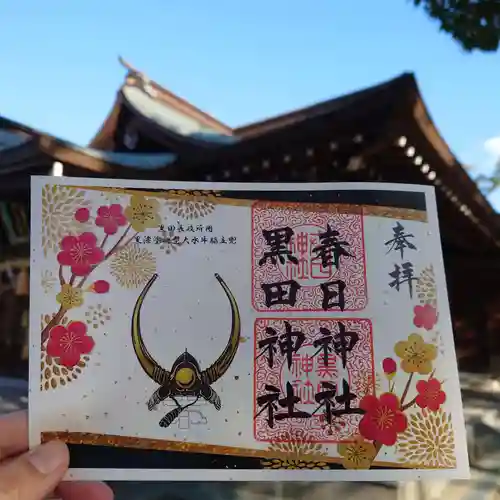 奉拝
春日神社
黒田神社
黒田長政所用
黒漆塗桃形大水牛脇立兜